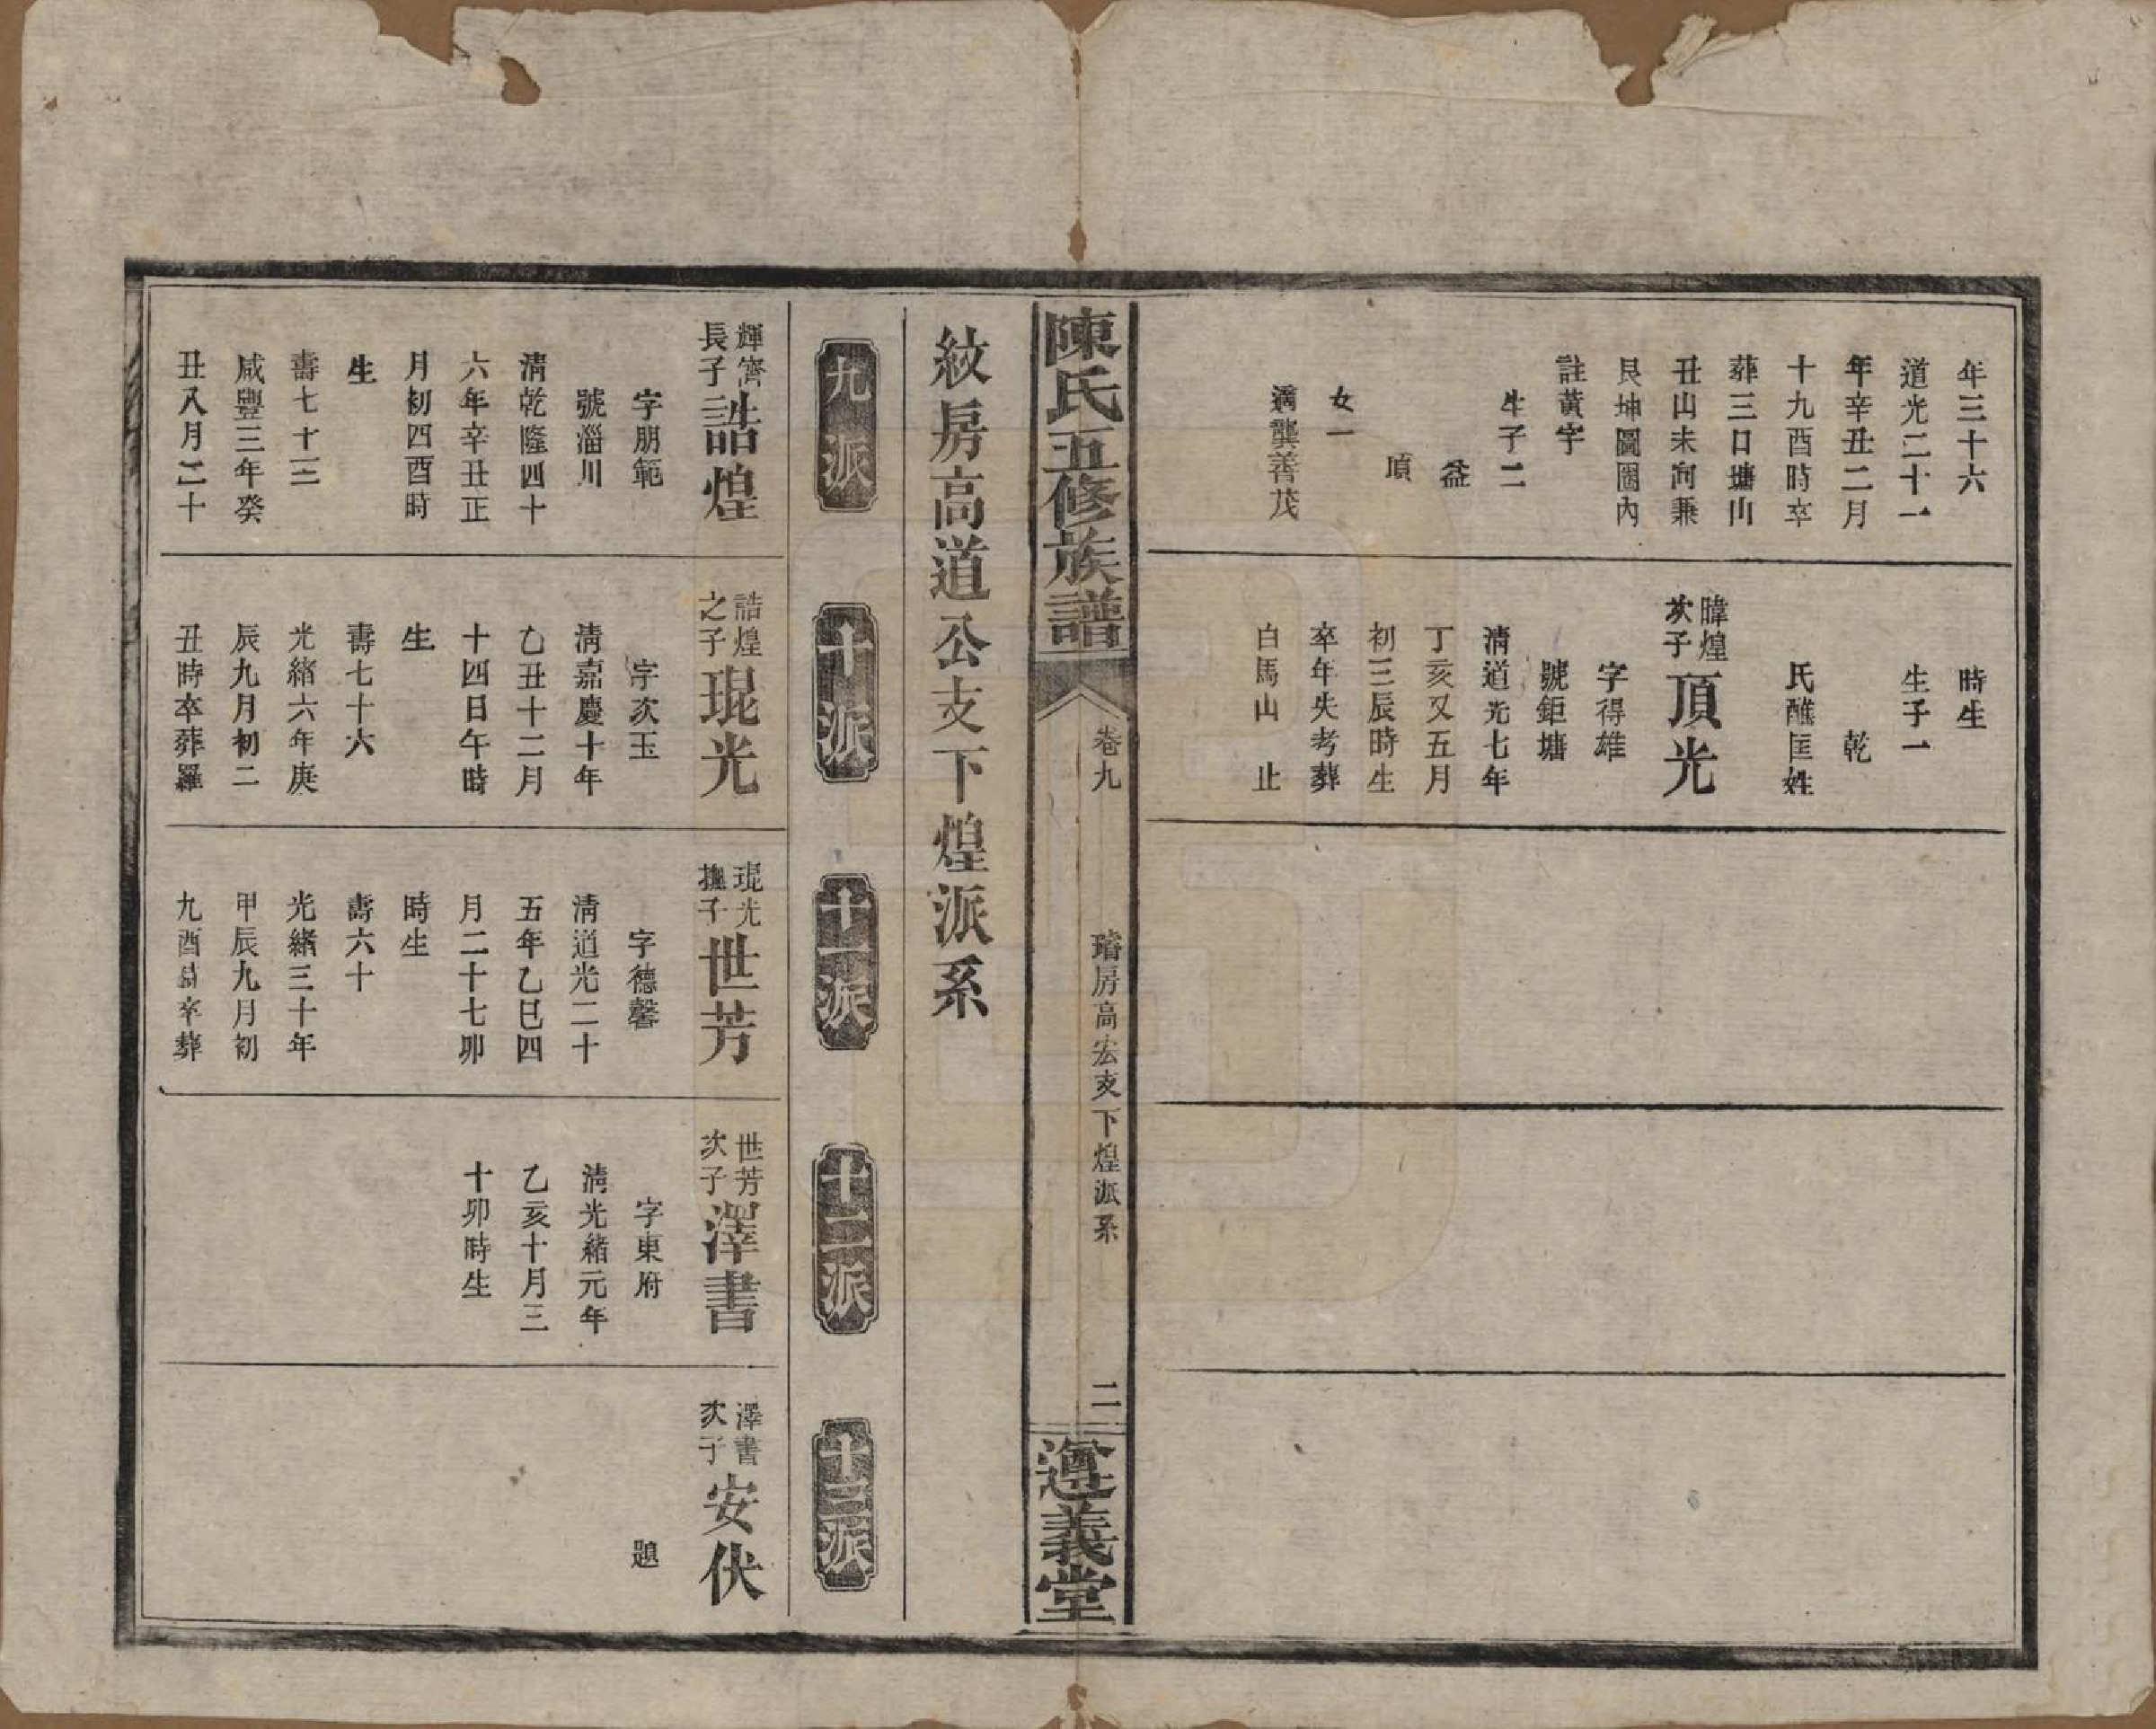 年三十六
道光二十一
年辛丑二月
十九酉時卒
葬三口塘山
丑山未向兼
艮坤圖圈內
註黃字
生子二
益
頃
女一
適龔善茂
時生
生子一
乾
氏醮匡姓
暐煌
次子
頂光
字得雄
號鉅塘
清道光七年
丁亥又五月
初三辰時生
卒年失考葬
白馬山　止
陳氏五修族譜
卷九
璿房高宏支下煌派系
二
遵義堂
紋房高道公支下煌派系
九派
十派
十一派
十二派
十三派
輝寗
長子
誥煌
字朋範
號淄川
清乾隆四十
六年辛丑正
月初四酉時
生
壽七十三
咸豐三年癸
丑八月二十
誥煌
之子
琨光
字次玉
清嘉慶十年
乙丑十二月
十四日午時
生
壽七十六
光緒六年庚
辰九月初二
丑時卒葬羅
琨光
撫子
世芳
字德馨
清道光二十
五年乙巳四
月二十七卯
時生
壽六十
光緒三十年
甲辰九月初
九酉時卒葬
世芳
次子
澤書
字東府
清光緒元年
乙亥十月三
十卯時生
澤書
次子
安伏
題